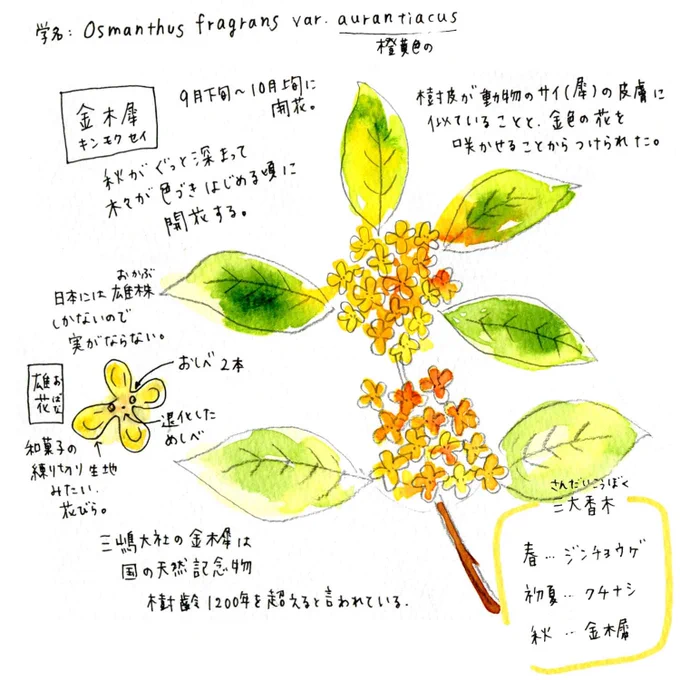 学名: Osmanthus fragrans var. aurantiacus
橙黄色の
金木犀
キンモクセイ
9月下旬～10月上旬に
開花。
秋がぐっと深まって
木々が色づきはじめる頃に
開花する。
樹皮が動物のサイ(犀)の皮膚に
似ていることと、金色の花を
咲かせることからつけられた。
おかぶ
日本には雄株
しかないので
実がならない。
雄花
おばな
おしべ 2本
退化した
めしべ
和菓子の
練り切り生地
みたい、
花びら。
三嶋大社の金木犀は
国の天然記念物
樹齢1200年を超えると言われている.
さんだいこうぼく
三大香木
春…ジンチョウゲ
初夏…クチナシ
秋…金木犀